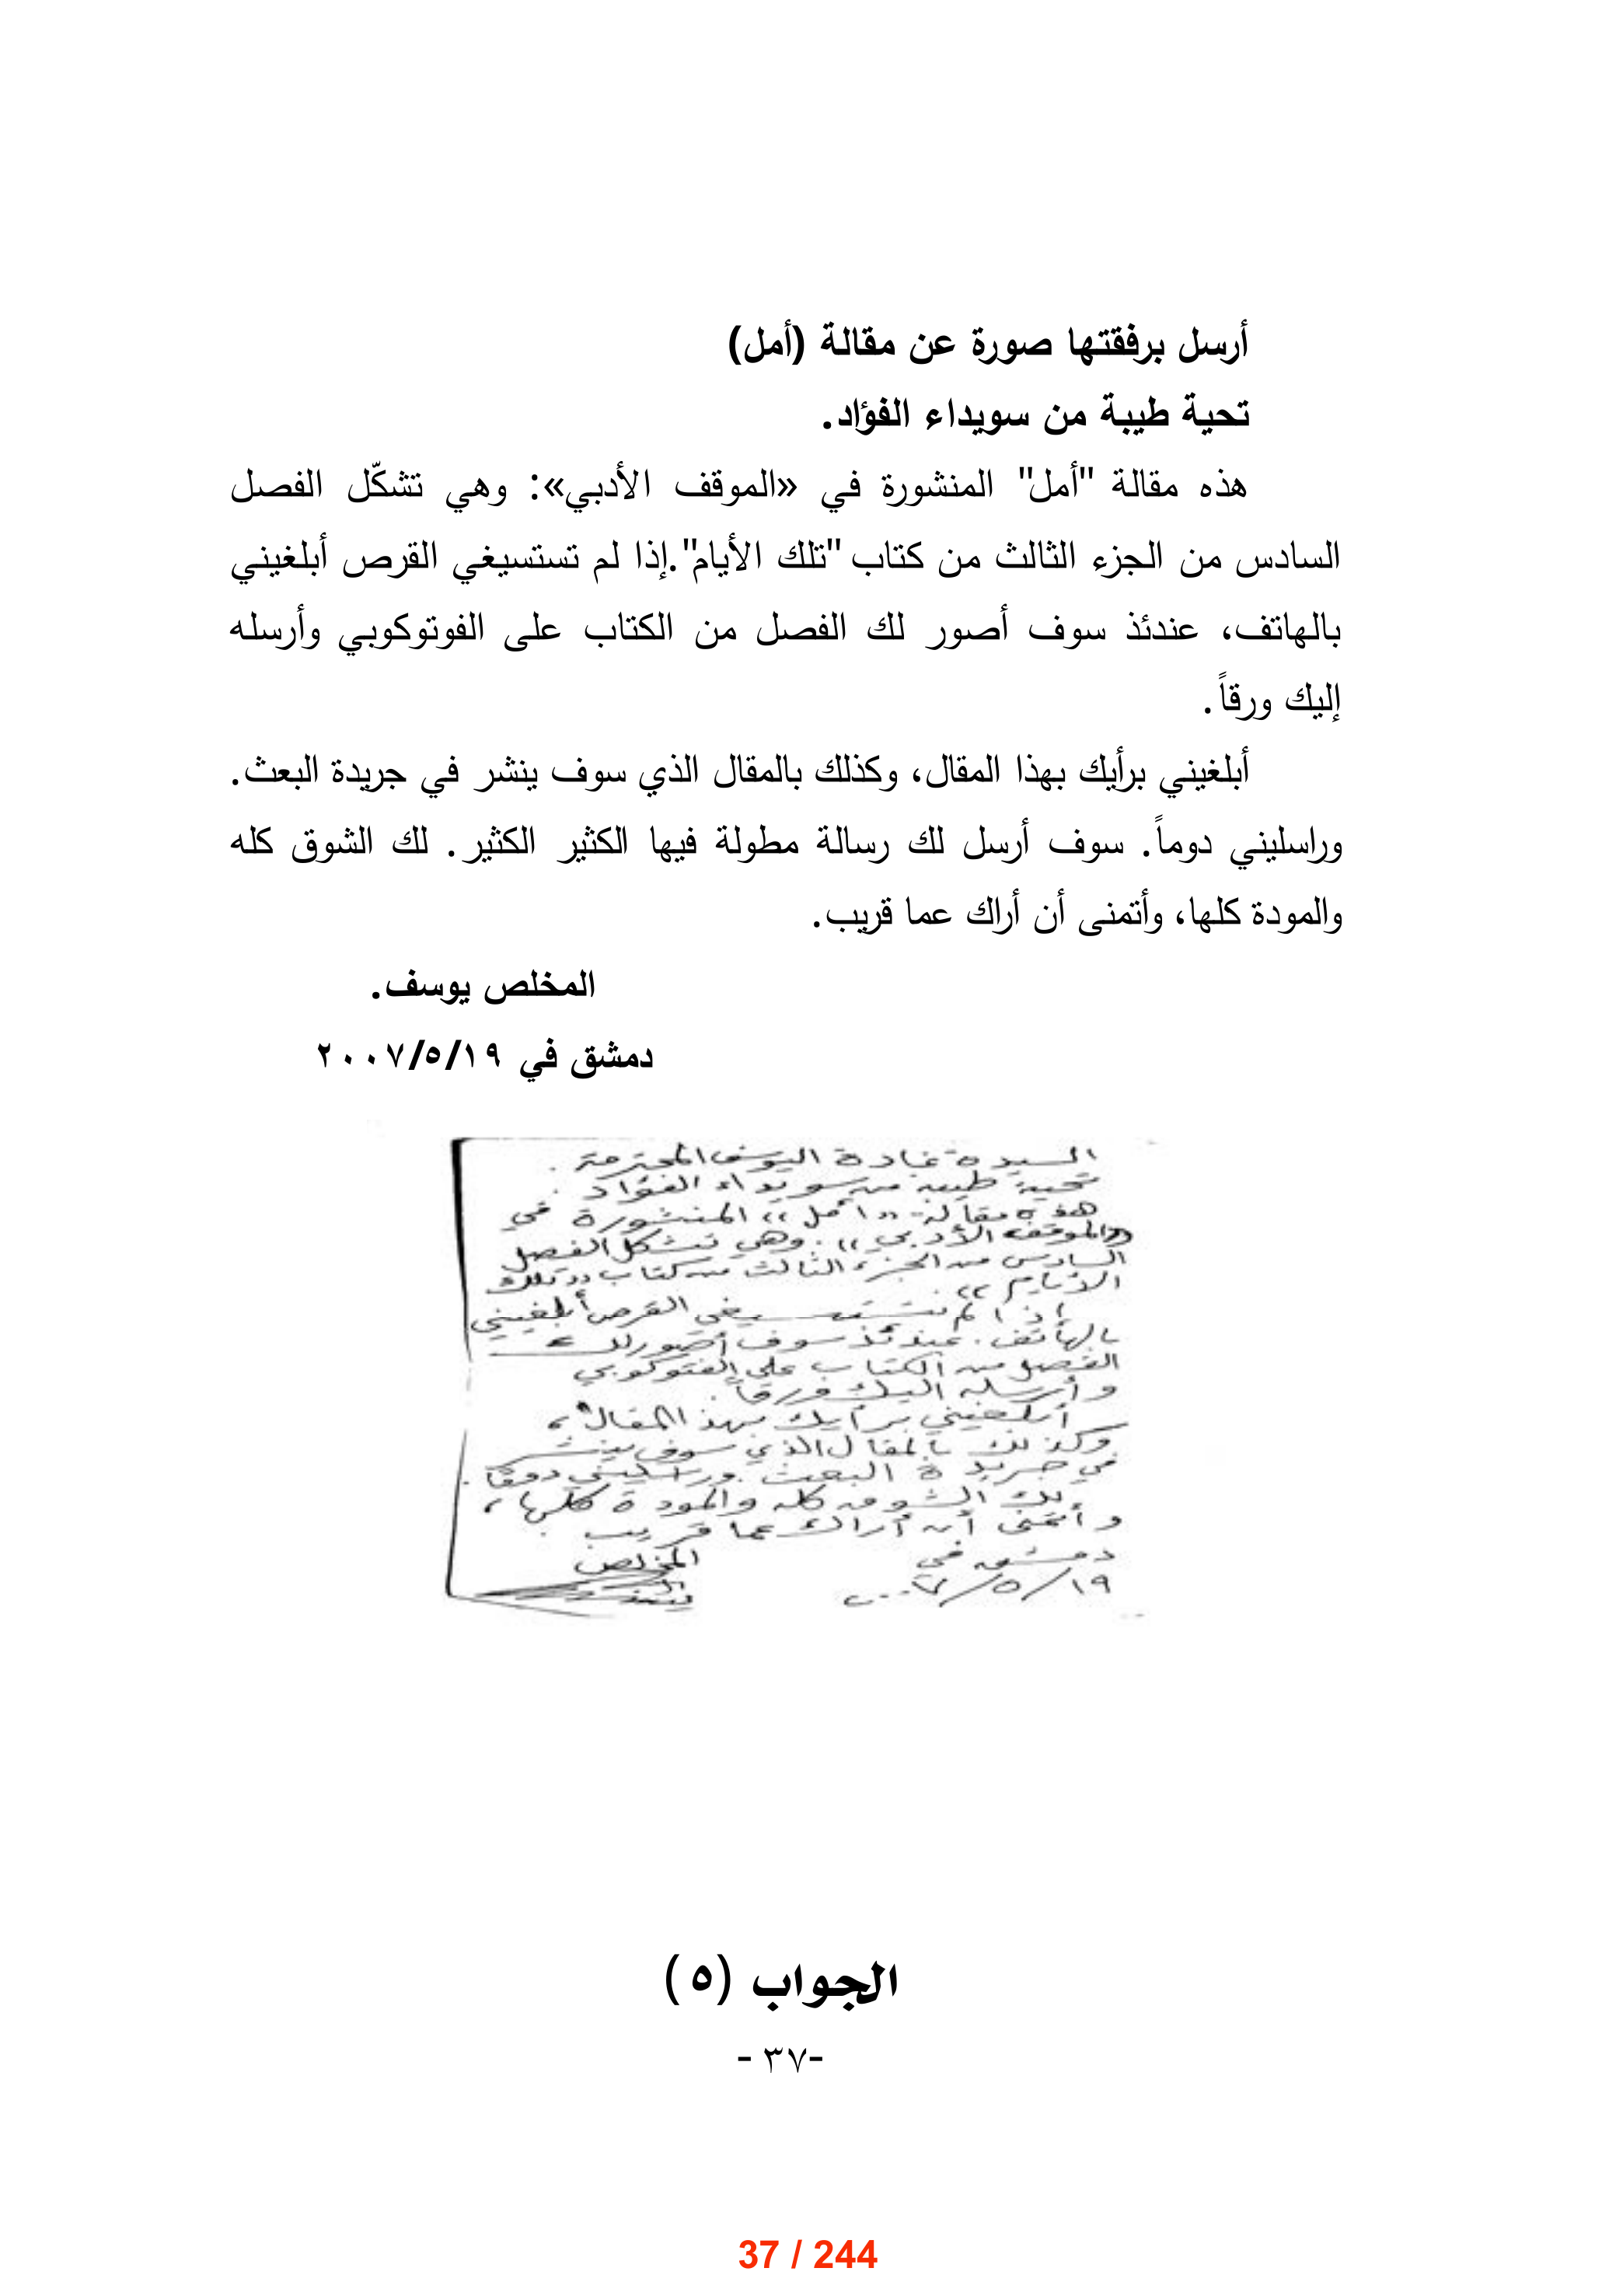 أرسل برفقتها صورة عن مقالة (أمل)
تحية طيبة من سويداء الفؤاد.
هذه مقالة "أمل" المنشورة في «الموقف الأدبي»: وهي تشكّل الفصل
السادس من الجزء الثالث من كتاب "تلك الأيام".إذا لم تستسيغي القرص أبلغيني
بالهاتف، عندئذ سوف أصور لك الفصل من الكتاب على الفوتوكوبي وأرسله
إليك ورقاً.
أبلغيني برأيك بهذا المقال، وكذلك بالمقال الذي سوف ينشر في جريدة البعث.
وراسليني دوماً. سوف أرسل لك رسالة مطولة فيها الكثير الكثير. لك الشوق كله
والمودة كلها، وأتمنى أن أراك عما قريب.
المخلص يوسف.
دمشق في ٢٠٠٧/٥/١٩
السيدة غادة اليوسف المحترمة.
تحية طيبة من سويداء الفؤاد.
هذه مقالة «أمل» المنشورة في
«الموقف الأدبي». وهي تشكل الفصل
السادس من الجزء الثالث من كتاب «تلك
الأيام».
إذا لم تستسيغي القرص أبلغيني
بالهاتف. عندئذ سوف أصور لك
الفصل من الكتاب على الفتوكوبي
وأرسله إليك ورقاً.
أبلغيني برأيك بهذا المقال،
وكذلك بالمقال الذي سوف ينشر
في جريدة البعث. وراسليني دومًا.
لك الشوق كله والمودة كلها،
وأتمنى أن أراك عما قريب.
دمشق في المخلص
٢٠٠٧/٥/١٩ يوسف
الجواب (٥)
-٣٧ -
37 / 244